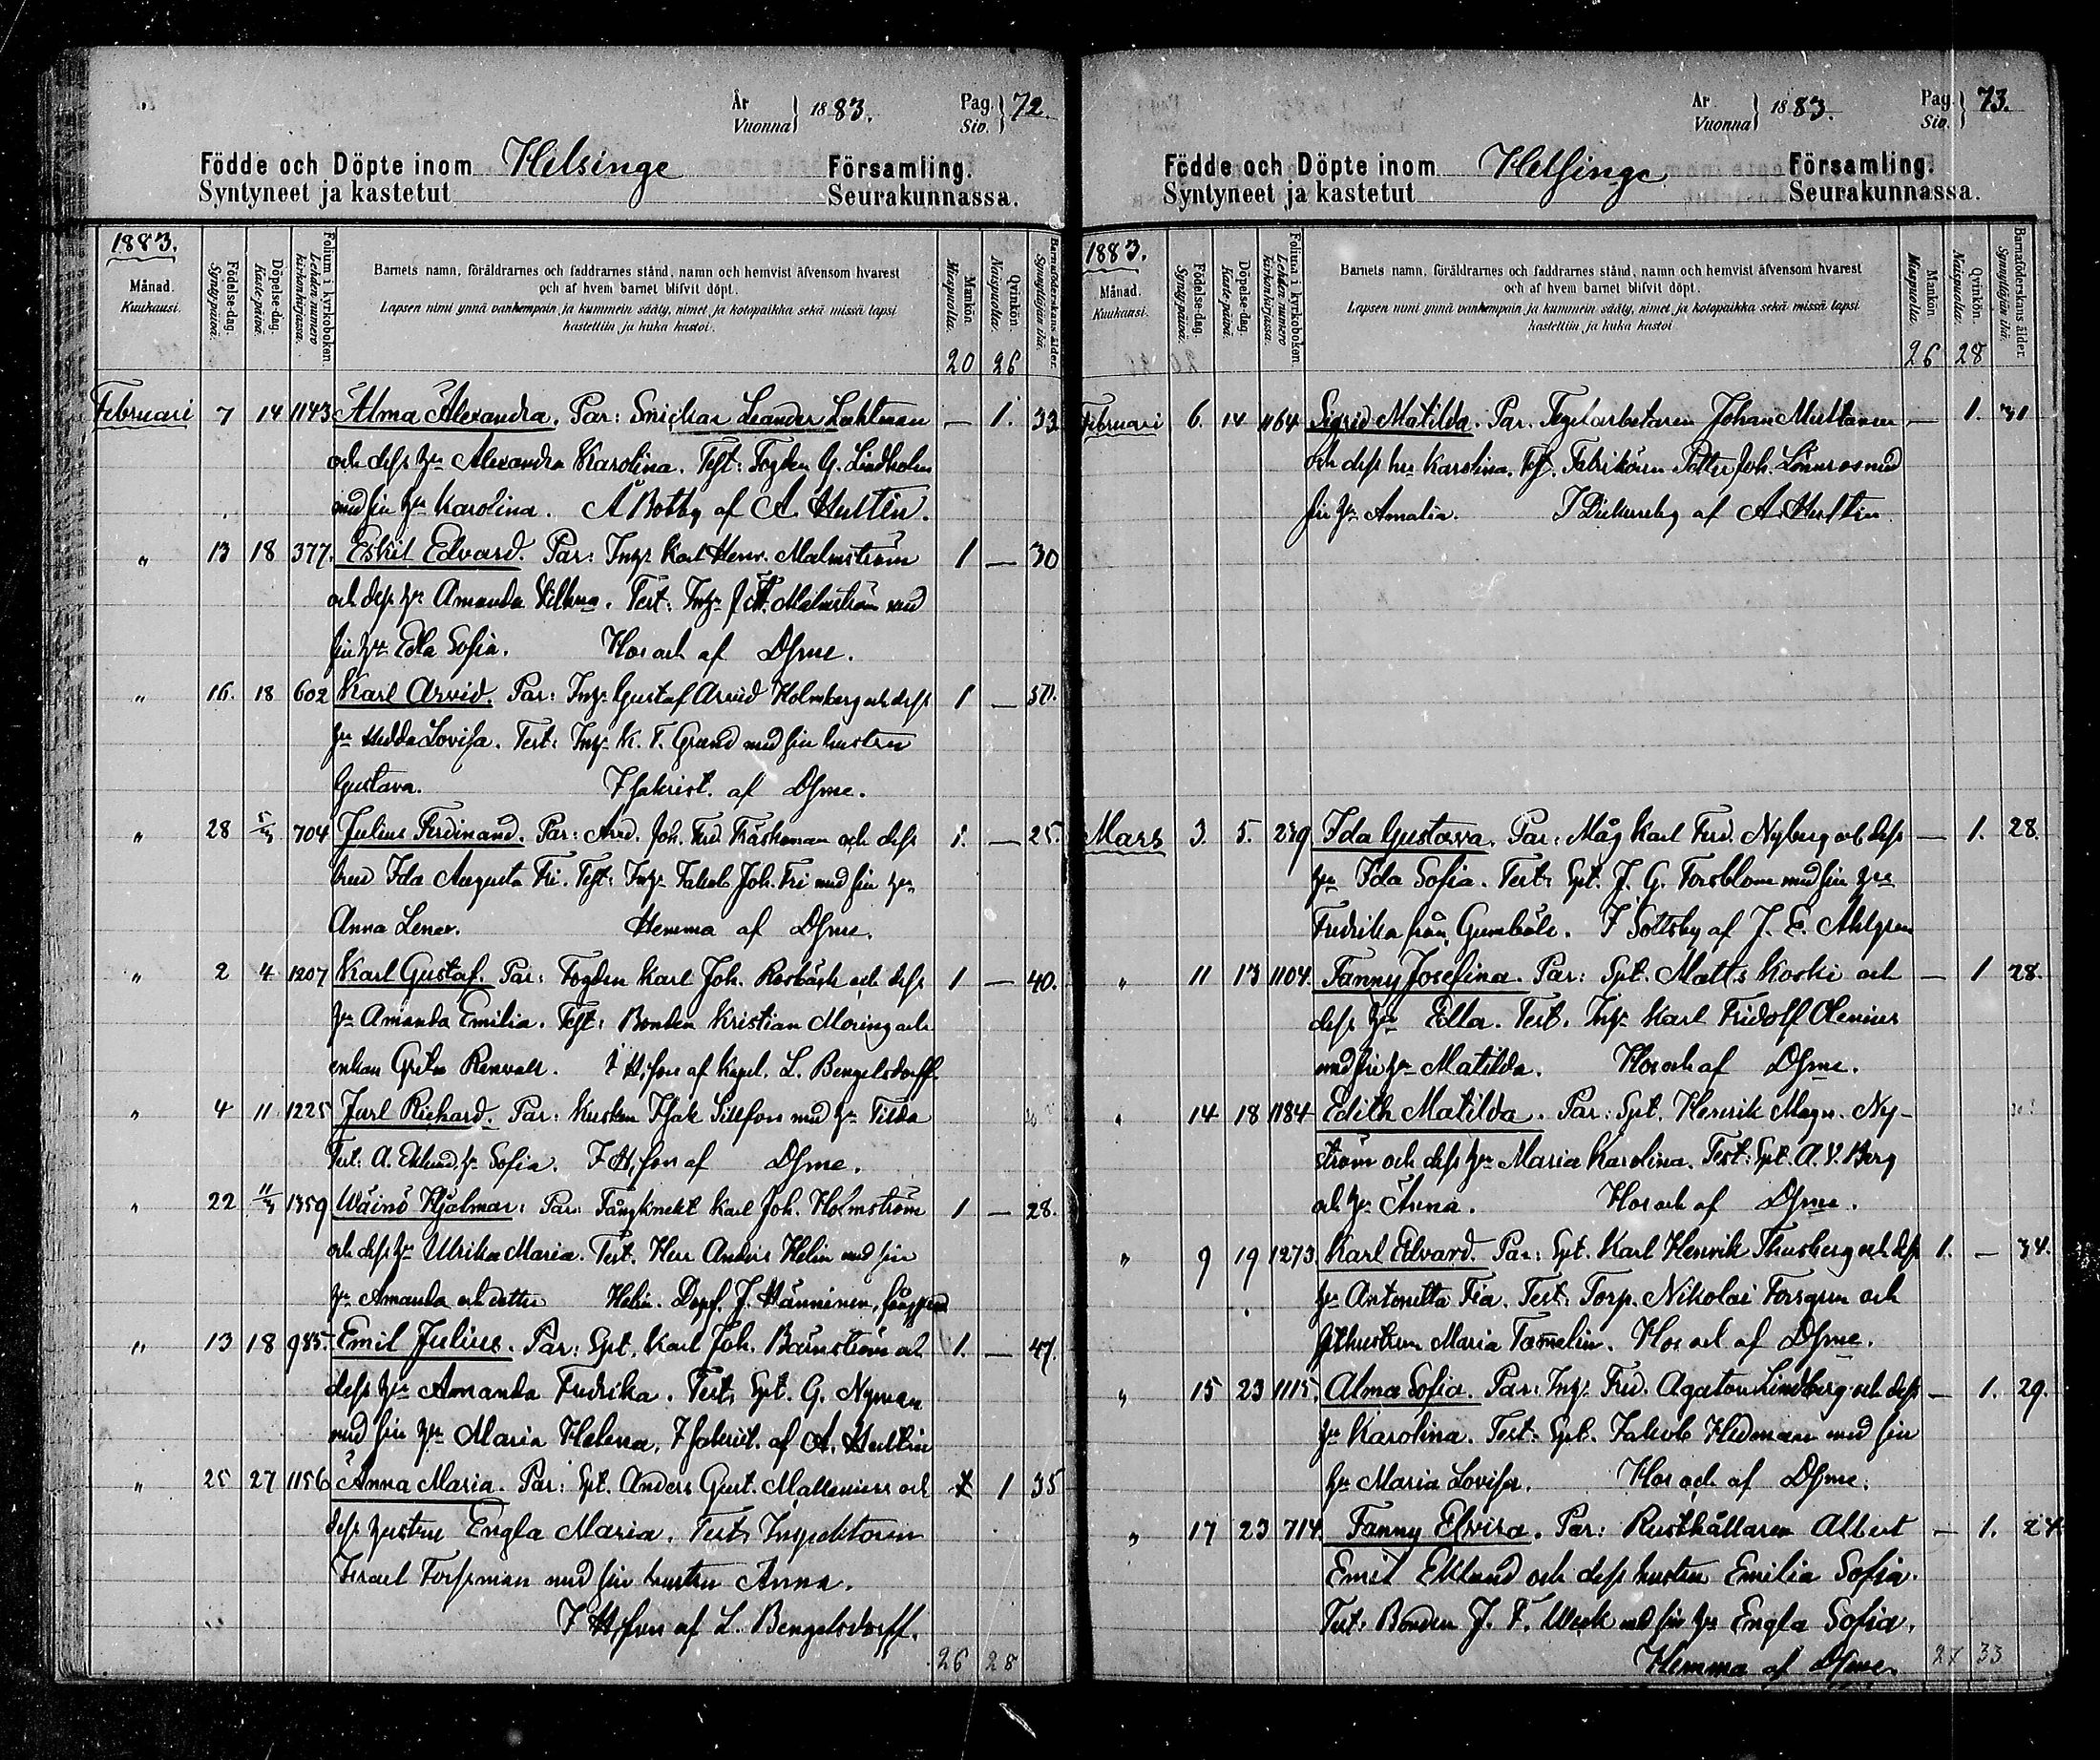 År
Vuonna } 1883.
Pag.
Siv. } 72.
Födde och Döpte inom Helsinge Församling.
Syntyneet ja kastetut Seurakunnassa.
1883.
Månad.
Kuukausi.
Födelse-dag.
Syntypäivä.
Döpelse-dag.
Kaste-päivä.
Folium i kyrkoboken.
Lehden numero kirkonkirjassa.
Barnets namn, föräldrarnes och faddrarnes stånd, namn och hemvist äfvensom hvarest
och af hvem barnet blifvit döpt.
Lapsen nimi ynnä vanhempain ja kummein sääty, nimet ja kotopaikka sekä missä lapsi
kastettiin ja kuka kastoi.
Mankön.
Miespuolia.
Qvinkön.
Naispuolia.
Barnaföderskans ålder.
Synnyttäjän ikä.
20 26
Februari 7 14 1143 Alma Alexandra. Par: Leander Lahtman — 1. 33
och dess hu Alexandra Karolina. Test: Fogden G. Lindholm
med sin hu Karolina. Å Botby af A. Hultin.
" 13 18 377. Eskil Edvard. Par: Inhs Karl Henr. Malmström 1 — 30
och dess hu Amanda Vilhna. Test: Inhs Malmström med
sin hu Edla Sofia. Hos och af Dsme.
" 16. 18 602 Karl Arvid. Par: Inhs Gustaf Arvid Holmberg och dess 1 —
hu Hedda Lovisa. Test: Inhs K. T. Grand med sin hustru
Gustava. I sakrist. af Dsme.
" 28 5/3 704 Julius Ferdinand. Par: Joh. Ferd. Träskman och dess 1. — 25.
hu Ida Augusta Fri. Test: Inhs Jakob Joh. Fri med sin hu
Anna Lena. Hemma af Dsme.
" 2 4 1207 Karl Gustaf. Par: Fogden Karl Joh. Rosbäck och dess 1 — 40.
hu Amanda Emilia. Test: Bonden Kristian Moring och
enkan Greta Renvall. I H,fors af Kapel. L. Bengelsdorff.
" 4 11 1225 Jarl Richard. Par: Kusken Isak Sillfors med hu Tilda
Test: A. Eklund, hu Sofia. I H,fors af Dsme.
" 22 11/3 1359 Wäinö Hjalmar: Par: Fångknekt Karl Joh. Holmström 1 — 28.
och dess hu Ulrika Maria. Test. Herr Anders Helin med sin
hu Amanda och dotter Helin. Döpt. J. Hänninen,
" 13 18 985. Emil Julius. Par: Spt. Karl Joh. Barnström och 1. — 47.
dess hu Amanda Fredrika. Test: Spt. G. Nyman
med sin hu Maria Helena. I sakrist. af A. Hultin
" 25 27 1156 Anna Maria. Par: Spt. Anders Gust. Mattenius och 1 35
dess hustru Engla Maria. Test: Inspektoren
Israel Forssman med sin hustru Anna.
I H,fors af L. Bengelsdorff.
26 28
År
Vuonna } 1883.
Pag.
Siv. } 73.
Födde och Döpte inom Helsinge Församling.
Syntyneet ja kastetut Seurakunnassa.
1883.
Månad.
Kuukausi.
Födelse-dag.
Syntypäivä.
Döpelse-dag.
Kaste-päivä.
Folium i kyrkoboken.
Lehden numero kirkonkirjassa.
Barnets namn, föräldrarnes och faddrarnes stånd, namn och hemvist äfvensom hvarest
och af hvem barnet blifvit döpt.
Lapsen nimi ynnä vanhempain ja kummein sääty, nimet ja kotopaikka sekä missä lapsi
kastettiin ja kuka kastoi.
Mankön.
Miespuolia.
Qvinkön.
Naispuolia.
Barnaföderskans ålder.
Synnyttäjän ikä.
26 28
Februari 6. 14 1164 Sigrid Matilda. Par. Tegelarbetaren Johan Multanen — 1. 31
och dess hu Karolina. Test. Fabrikören Petter Joh. Lönnroos med
sin hu Amalia. I Dickursby af A. Hultin
Mars 3. 5. 239 Ida Gustava. Par: Måg Karl Ferd. Nyberg och dess — 1. 28.
hu Ida Sofia. Test: Spt. J. G. Forsblom med sin hu
Fredrika från Gumböle. I Sottsby af J. E. Ahlgren
" 11 13 1104. Fanny Josefina. Par: Spt. Matts Koski och — 1 28.
dess hu Edla. Test. Inhs Karl Fridolf Olenius
med sin hu Matilda. Hos och af Dsme.
" 14 18 1184 Edith Matilda. Par: Spt. Henrik Magn. Ny-
ström och dess hu Maria Karolina. Test: Spt. A. V. Berg
och hu Anna. Hos och af Dsme.
" 9 19 1273 Karl Edvard. Par: Spt. Karl Henrik Thusberg och dess 1. — 34.
hu Antonetta Fia. Test: Torp. Nikolai Forsgren och
hustrun Maria Tammelin. Hos och af Dsme.
" 15 23 1115. Alma Sofia. Par: Inhs Fred. Agaton Lindberg och dess — 1. 29.
hu Karolina. Test: Spt. Jakob Hedman med sin
hu Maria Lovisa. Hos och af Dsme.
" 17 23 714. Fanny Elvira. Par: Rusthållaren Albert — 1. 24
Emil Eklund och dess hustru Emilia Sofia.
Test: Bonden J. F. Weck med sin hu Engla Sofia.
Hemma af Dsme.
27 33